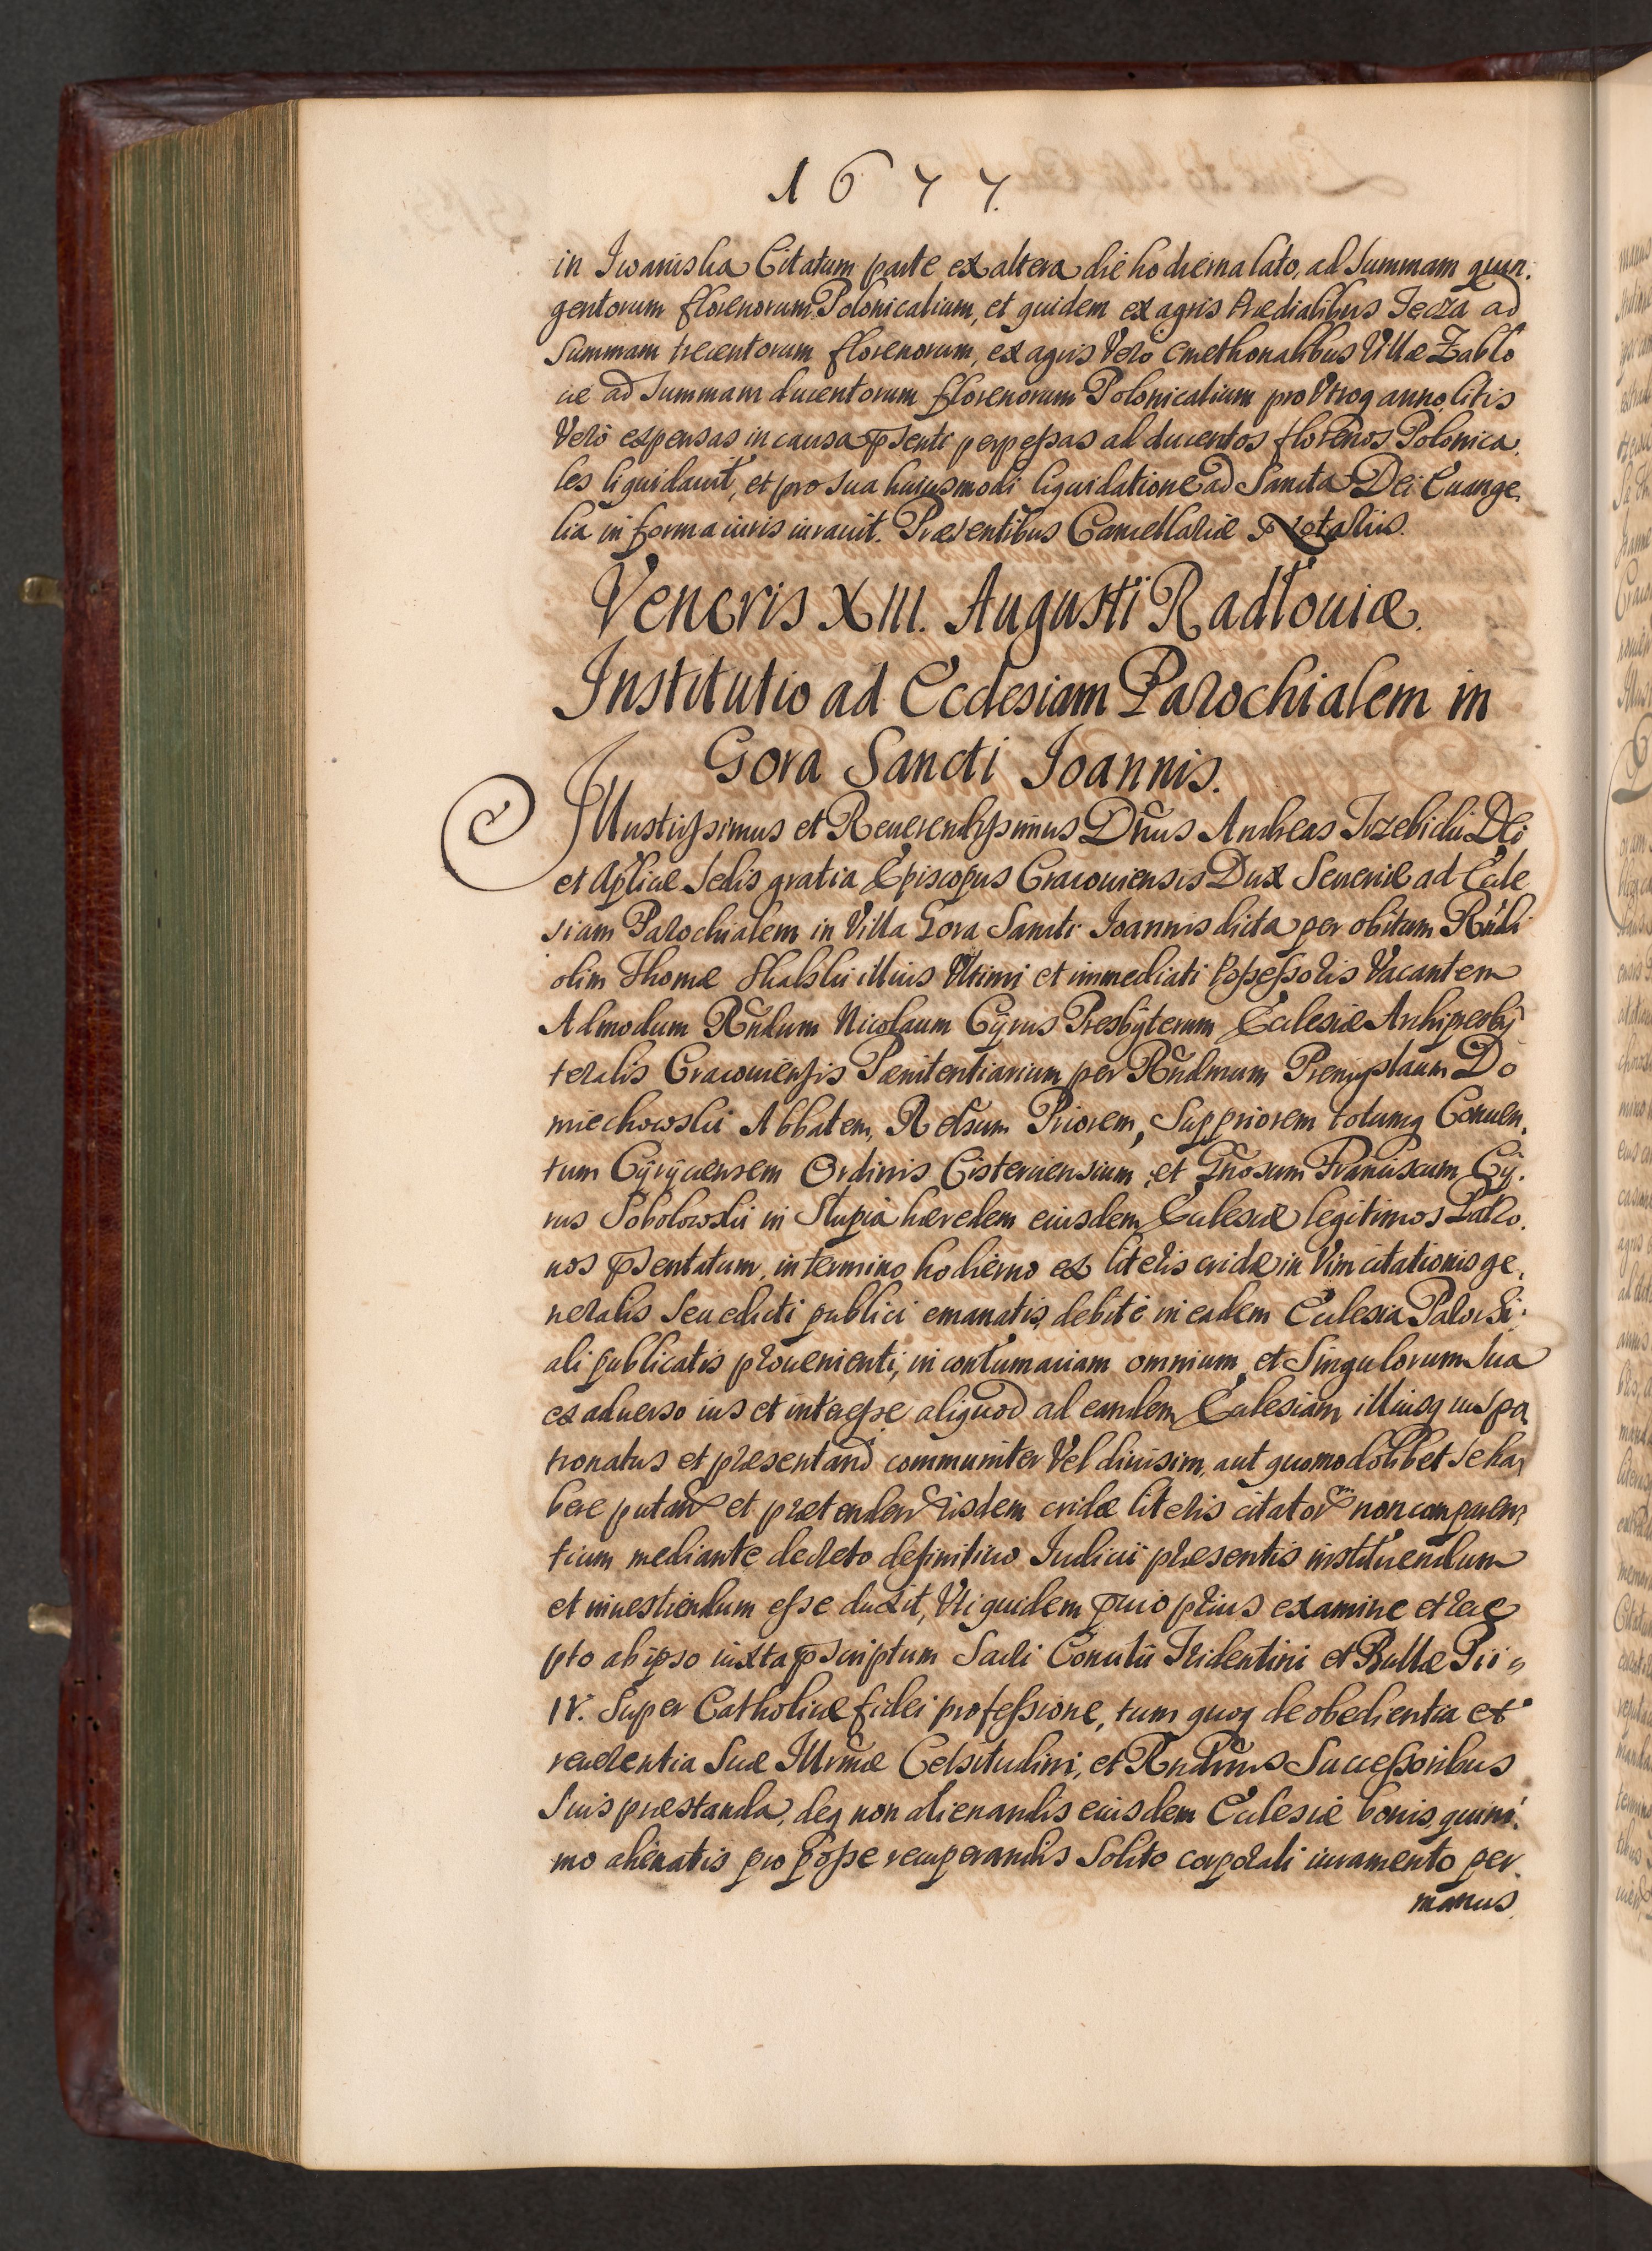 1677.
in Iwaniska Citatum parte ex altera die hodierna lato, ad Summam quin,
gentorum florenorum Polonicalium, et quidem ex agris Prædialibus ad
Summam trecentorum florenorum, ex agris Vero Cmethonalibus Villæ Zablo
ciæ ad Summam ducentorum florenorum Polonicalium pro Utroq anno, litis
Vero expensas in causa pñti perpeßas ad ducentos florenos Polonica,
les liquidauit, et pro Sua huiusmodi liquidatione ad Sancta Dei Euange,
lia in forma iuris iurauit. Præsentibus Cancellariæ Notariis.
Veneris XIII. Augusti Radłouiæ.
Institutio ad Ecclesiam Parochialem in
Gora Sancti Ioannis.
Illustrißimus et Reuerendißimus Dñus Andreas Trzebicki Dei
et Aplicæ Sedis gratia Episcopus Cracouiensis Dux Seueriæ ad Eccle
siam Parochialem in Villa Gora Sancti Ioannis dicta per obitum Rñdi
olim Thomæ Skalski illius Ultimi et immediati Poßeßoris Vacantem
Admodum Rñdum Nicolaum Cÿrus Presbÿterum Ecclesiæ Archipresbÿ
teralis Cracouiensis Pænitentiarium per Rñdmum Premislaum Do
miechowski Abbatem, Relsum Priorem, Suppriorem totumq Conuen,
tum Cÿrÿcensem Ordinis Cisterciensium, et Gñosum Franciscum Cÿ,
rus Sobolowski in Slupia hæredem eiusdem Ecclesiæ legitimos Patro,
nos pñsentatum, in termino hodierno ex literis cridæ in Vim citationis ge,
neralis Seu edicti publici emanatis, debite in eadem Ecclesia Parochi,
ali publicatis prouenienti, in contumaciam omnium et Singulorum Sua
ex aduerso ius et intereße aliquod ad eandem Ecclesiam illiusq ius pa
tronatus et præsentand communiter Vel diuisim, aut quomodolibet Se ha,
bere putan et prætenden iisdem cridæ literis citator non comparen,
tium mediante decreto definitiuo Iudicii præsentis instituendum
et inuestiendum eße duxit, Uti quidem præuio prius examine et rece
pto ab ipso iuxta pscriptum Sacri Concilii Tridentini et Bullæ Pii
IV. Super Catholicæ fidei profeßione, tum quoq de obedientia et
reuerentia Suæ Illrmæ Celsitudini, et Rndmis Succeßoribus
Suis præstanda, deq non alienandis eiusdem Ecclesiæ bonis, quini,
mo alienatis pro poße recuperandis Solito corporali iuramento per
manus